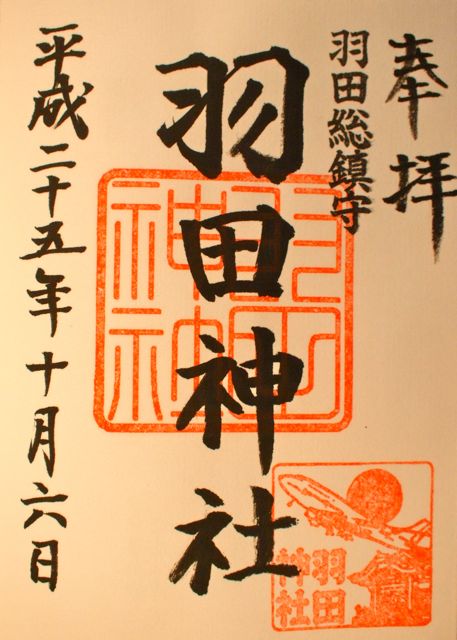 奉拝
羽田総鎮守
羽田神社
平成二十五年十月六日
羽田
神社